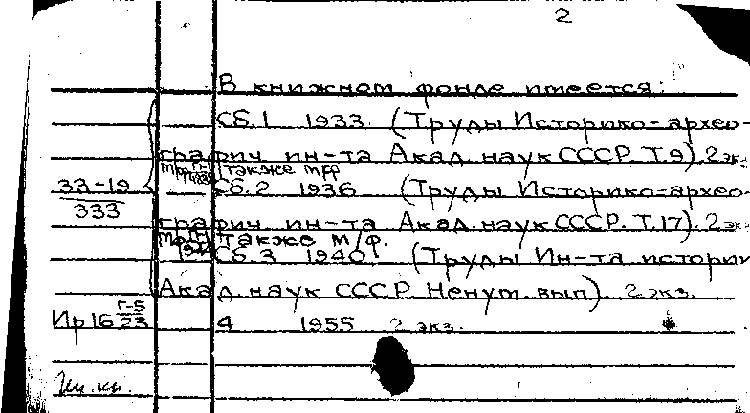 2
В книжном фонде имеется:
Сб. 1 1933. (Труды Историко-архео-
графич. ин-та Акад. наук СССР. Т. 9). 2 экз.
также мрр
33-19 Сб. 2 1936 (Труды Историко-архео-
333
графич. ин-та Акад. наук СССР. Т. 17). 2 экз.
также м/ф.
Сб. 3 1940 (Труды Ин-та истории
Акад. наук СССР. Ненум. вып.). 2 экз.
Ир16 Г-5/23 4 1955 2 экз.